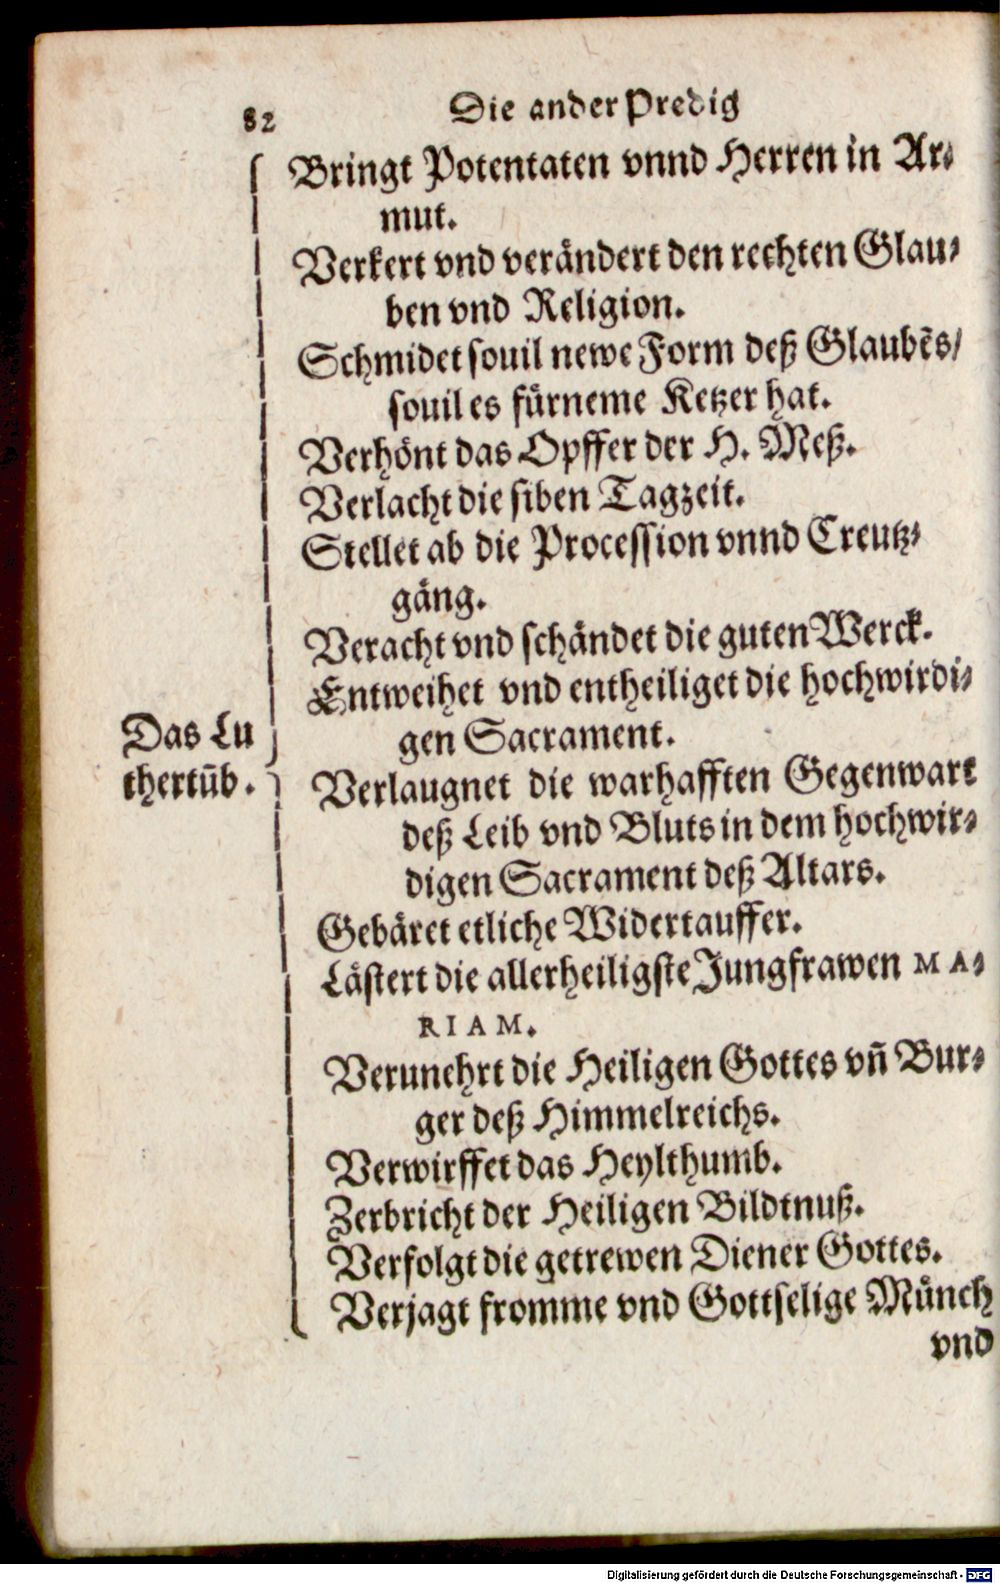 82 Die ander Predig
Bringt Potentaten vnnd Herren in Ar⸗
mut.
Verkert vnd verändert den rechten Glau⸗
ben vnd Religion.
Schmidet souil newe Form deß Glaubẽs/
souil es fürneme Ketzer hat.
Verhönt das Opffer der H. Meß.
Verlacht die siben Tagzeit.
Stellet ab die Procession vnnd Creutz⸗
gäng.
Veracht vnd schändet die guten Werck.
Entweihet vnd entheiliget die hochwirdi⸗
gen Sacrament.
Das Lu
thertũb.
Verlaugnet die warhafften Gegenwart
deß Leib vnd Bluts in dem hochwir⸗
digen Sacrament deß Altars.
Gebäret etliche Widertauffer.
Lästert die allerheiligste Jungfrawen MA⸗
RIAM.
Verunehrt die Heiligen Gottes vñ Bur⸗
ger deß Himmelreichs.
Verwirffet das Heylthumb.
Zerbricht der Heiligen Bildtnuß.
Verfolgt die getrewen Diener Gottes.
Verjagt fromme vnd Gottselige Münch
vnd
Digitalisierung gefördert durch die Deutsche Forschungsgemeinschaft - DFG